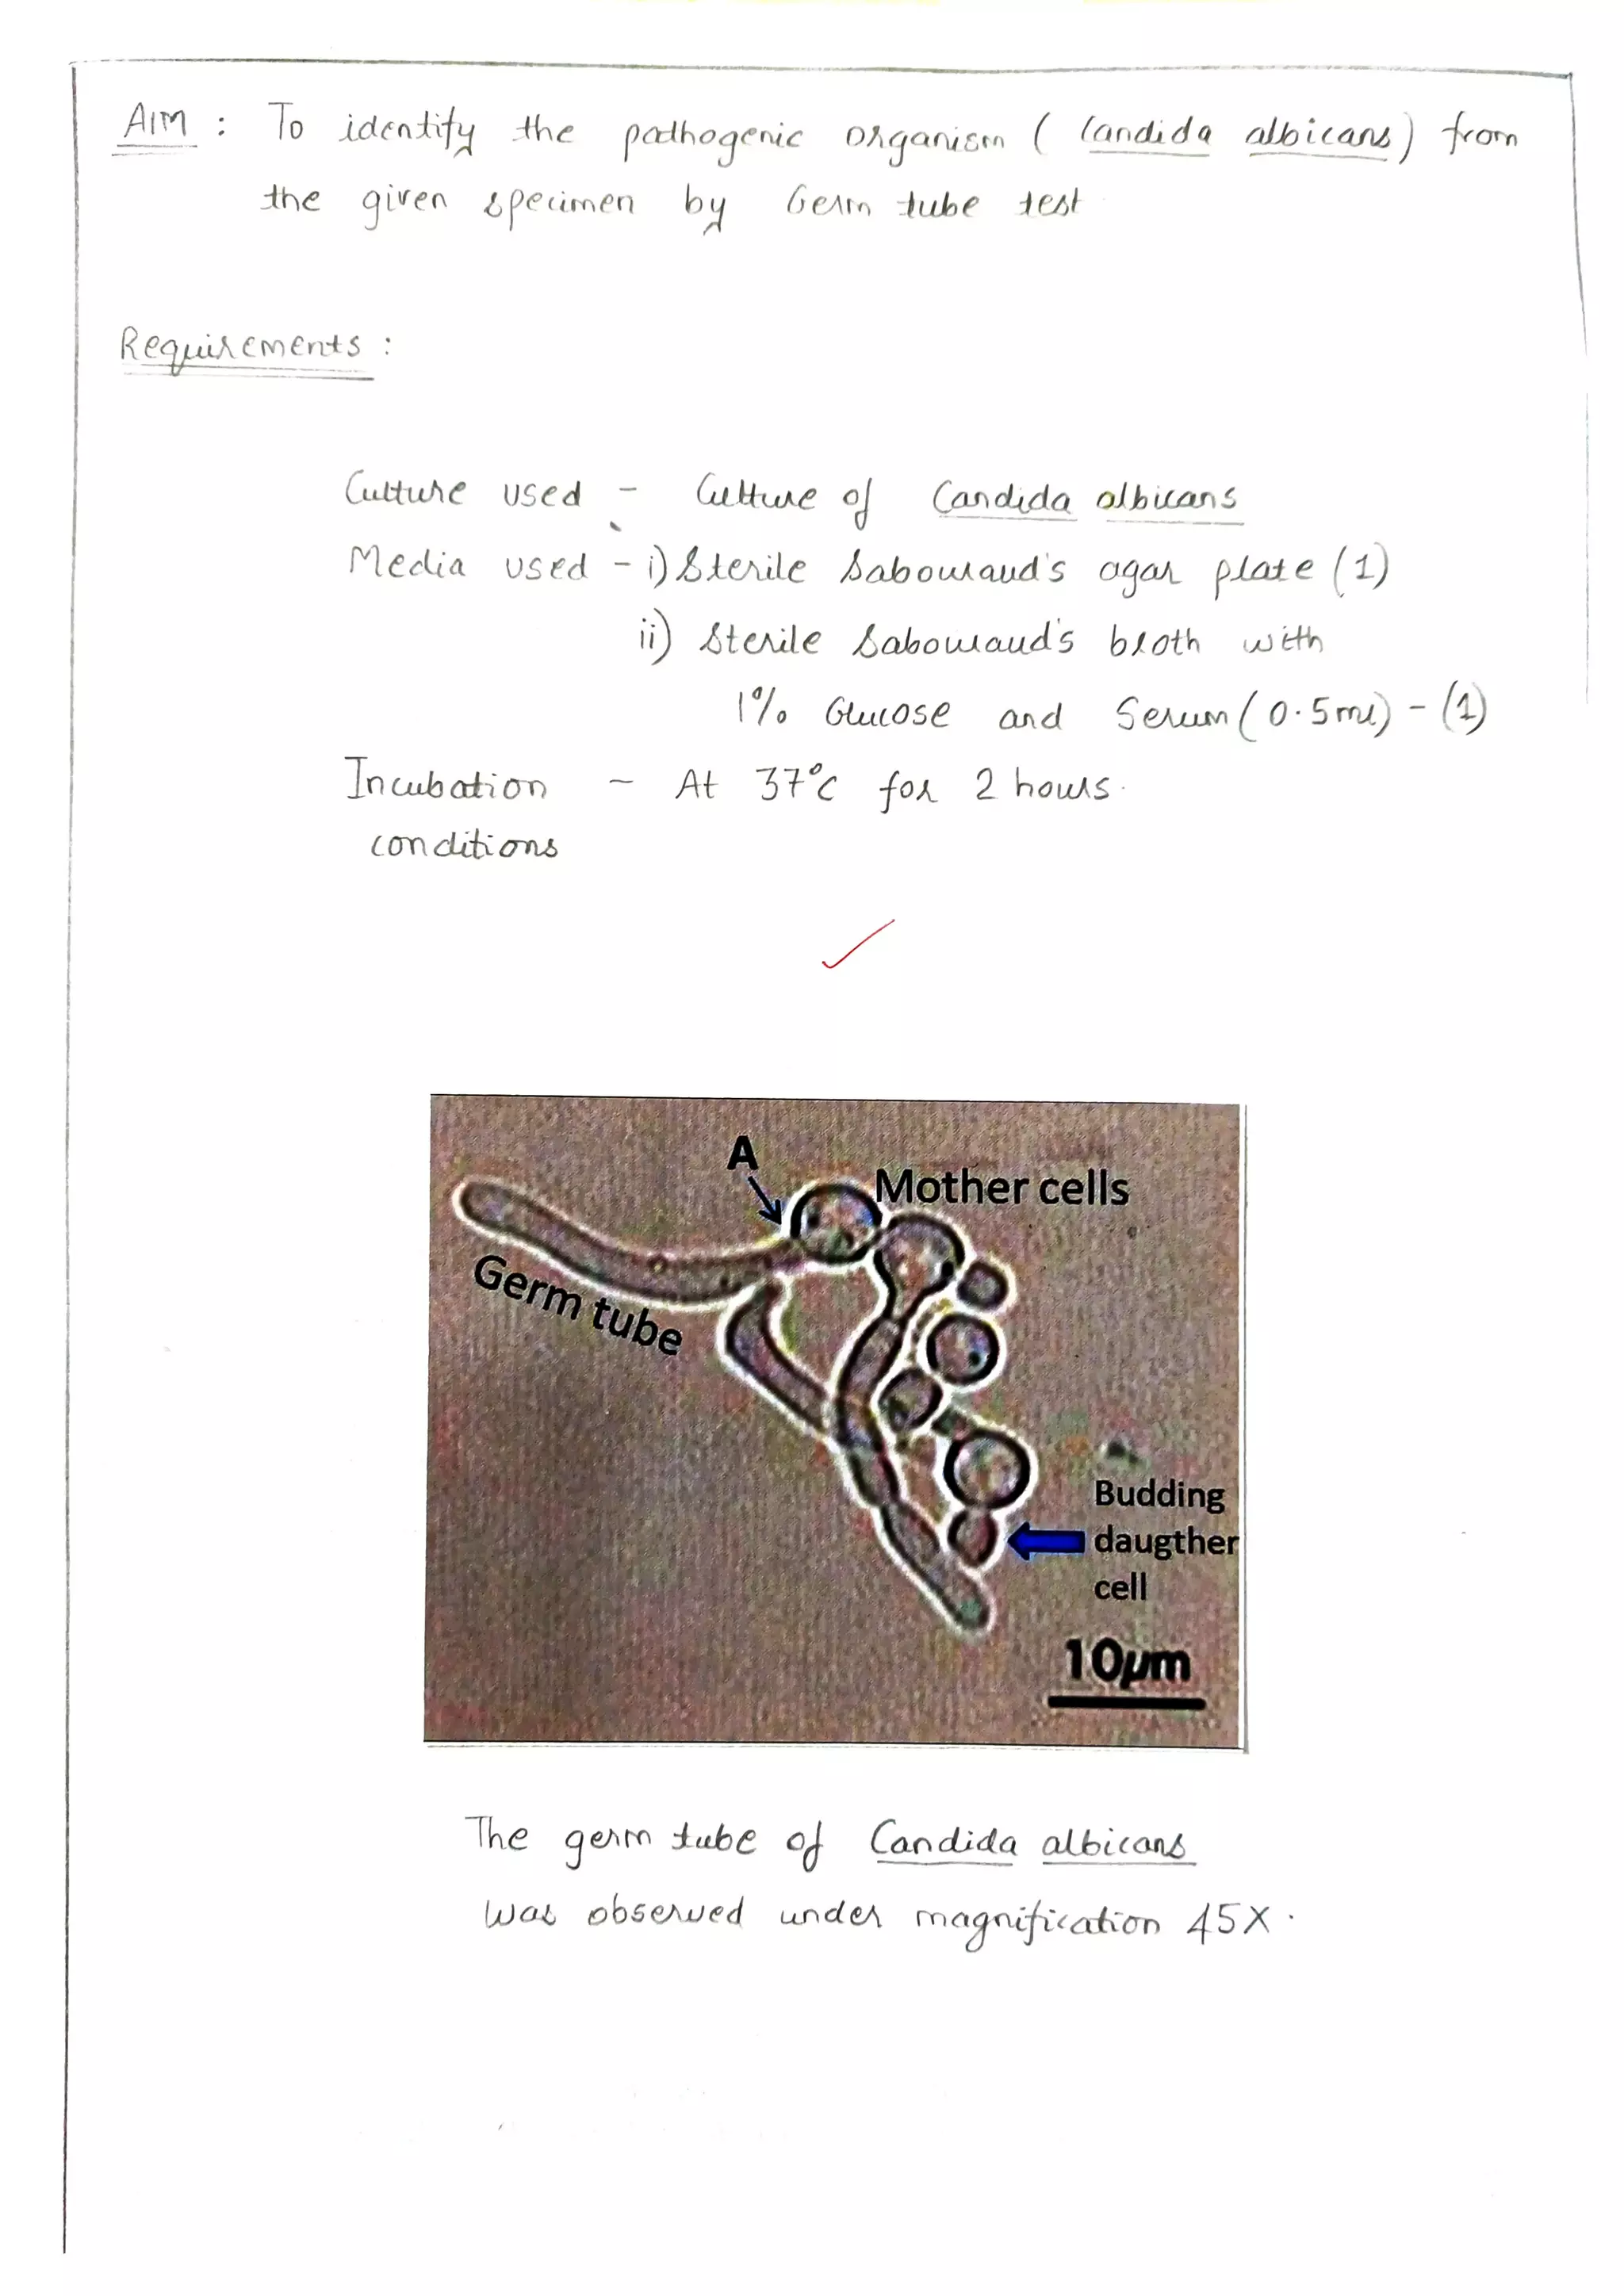 AIM : To identify the pathogenic organism ( Candida albicans) from
the given specimen by Germ tube test
Requirements :
Culture used - Culture of Candida albicans
Media used - i) Sterile Sabouraud's agar plate (1)
ii) Sterile Sabouraud's broth with
1% Glucose and Serum (0.5ml) - (1)
Incubation - At 37°C for 2 hours.
conditions
A
Mother cells
Germ tube
Budding
daugther
cell
10µm
The germ tube of Candida albicans
was observed under magnification 45X.